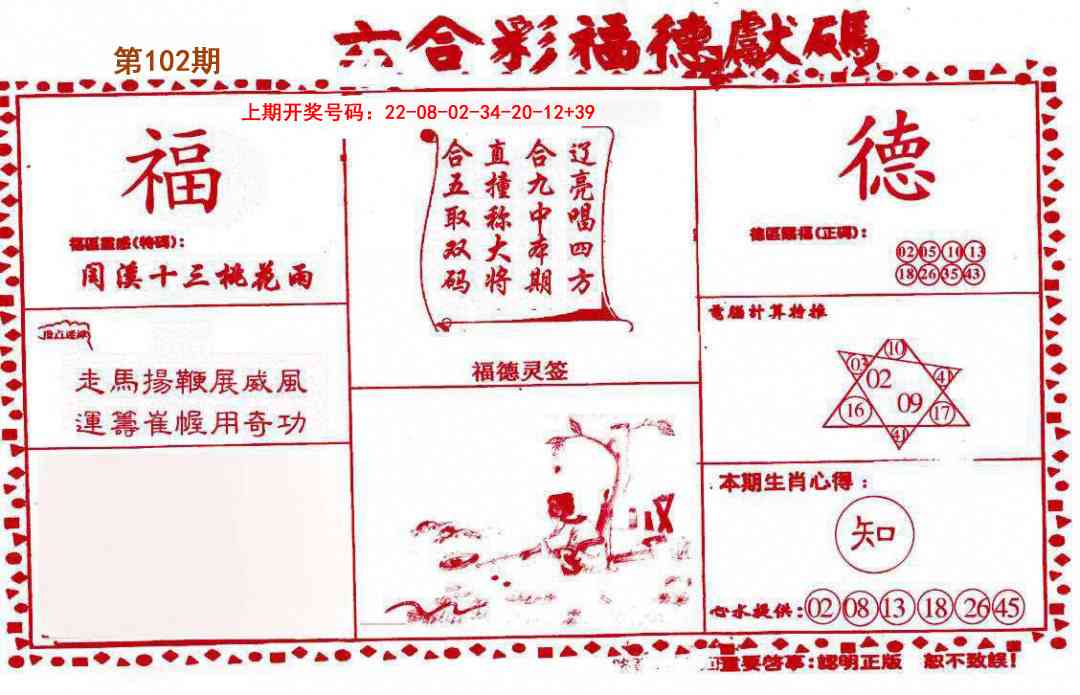 六合彩福德獻碼
第102期
上期开奖号码：22-08-02-34-20-12+39
福
福區靈感(特碼)：
閏溪十三桃花雨
走馬揚鞭展威風
運籌崔幄用奇功
辽亮唱四方
合九中本期
直撞称大将
合五取双码
福德灵签
德
德區賜福(正碼)：
02 05 10 13
18 26 35 43
電腦計算特推
10
03 02 41
16 09 17
41
本期生肖心得：
知
心水提供：02 08 13 18 26 45
重要啓事：認明正版 恕不致誤！